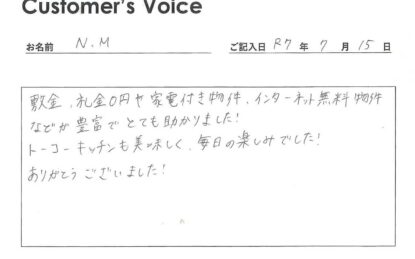 Customer's Voice
お名前 N.M ご記入日 R7 年 7 月 15 日
敷金、礼金0円や家電付き物件、インターネット無料物件
などが豊富でとても助かりました!
トーコーキッチンも美味しく、毎日の楽しみでした!
ありがとうございました!